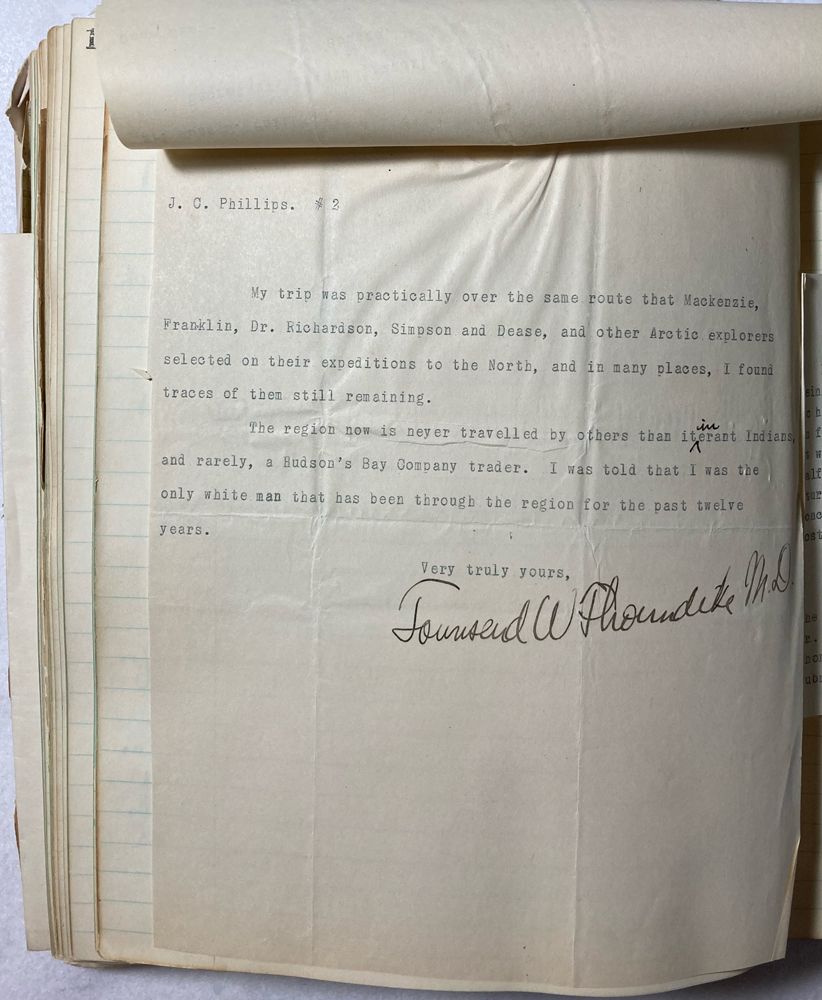 J. C. Phillips. # 2
My trip was practically over the same route that Mackenzie,
Franklin, Dr. Richardson, Simpson and Dease, and other Arctic explorers
selected on their expeditions to the North, and in many places, I found
traces of them still remaining.
The region now is never travelled by others than itinerant Indians,
and rarely, a Hudson's Bay Company trader. I was told that I was the
only white man that has been through the region for the past twelve
years.
Very truly yours,
Townsend W Thorndike M.D.